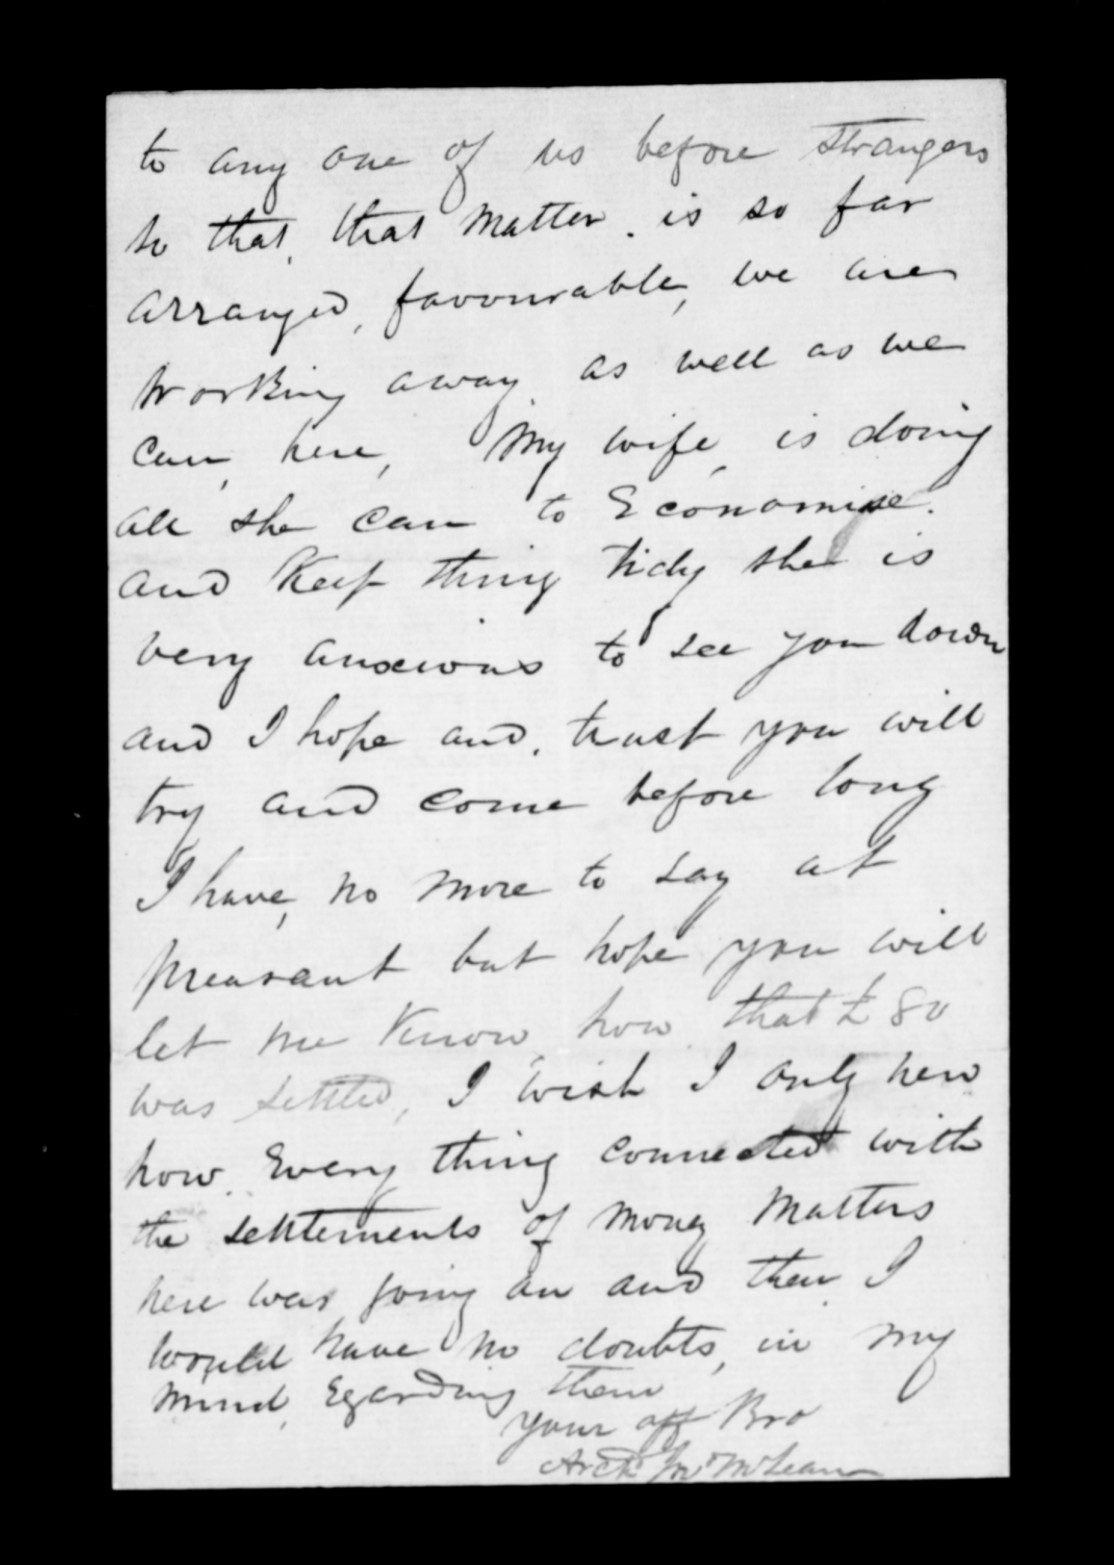 to any one of us before strangers
so that, that matter. is so far
arranged, favourable, we are
working away as well as we
can, here, My wife, is doing
all she can to Economise.
and Keep thing tidy she is
very anxious to see you down
and I hope and. trust you will
try and come before long
I have, no more to say at
preasant but hope you will
let me Know how that £80
was settled, I wish I only new
how. Every thing connected with
the settlements of money matters
here was going on and then I
would have no doubts, in my
mind, Egarding them
your aff Bro
Archd Jno McLean